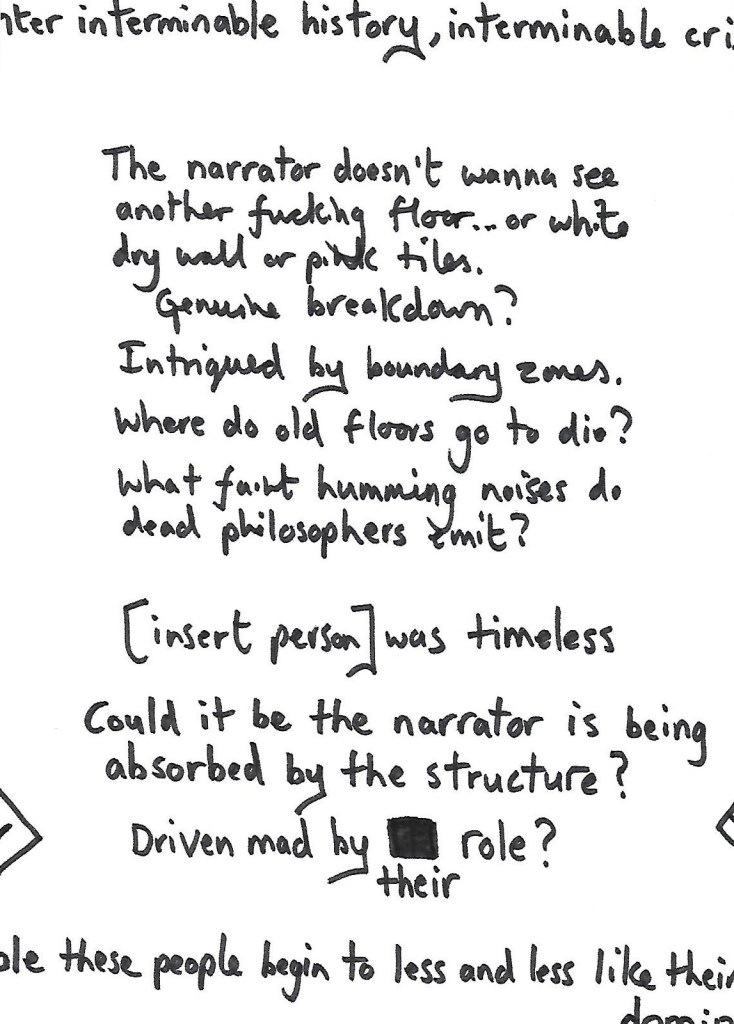 nter interminable history, interminable cri
The narrator doesn't wanna see
another fucking floor... or white
dry wall or pink tiles.
Genuine breakdown?
Intrigued by boundary zones.
Where do old floors go to die?
What faint humming noises do
dead philosophers emit?
[insert person] was timeless
Could it be the narrator is being
absorbed by the structure?
Driven mad by role?
their
ole these people begin to less and less like their
domin